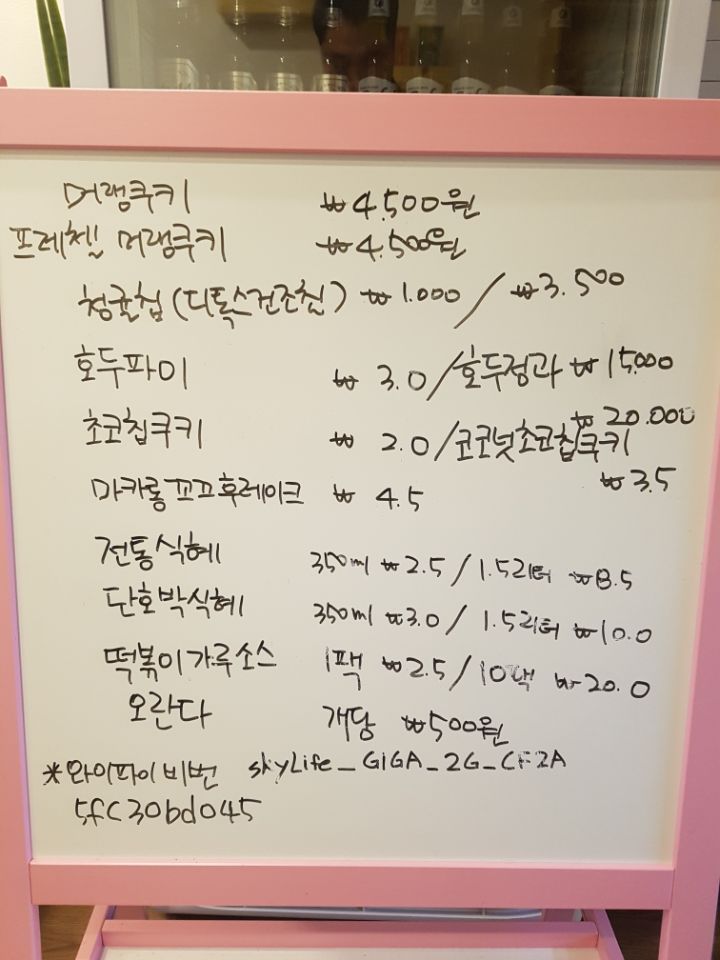 머랭쿠키 ₩4.500원
프레첼 머랭쿠키 ₩4.500원
청귤칩(디톡스건조칩) ₩1.000 / ₩3.500
호두파이 ₩ 3.0/호두정과 ₩15.000
₩20.000
초코칩쿠키 ₩ 2.0/코코넛초코칩쿠키
₩3.5
마카롱꼬끄후레이크 ₩ 4.5
전통식혜 350ml ₩2.5/1.5리터 ₩8.5
단호박식혜 350ml ₩3.0/ 1.5리터 ₩10.0
떡볶이가루소스 1팩 ₩2.5/10팩 ₩20.0
오란다 개당 ₩500원
*와이파이비번 skyLife_GIGA_2G_CF2A
5fC30bd045